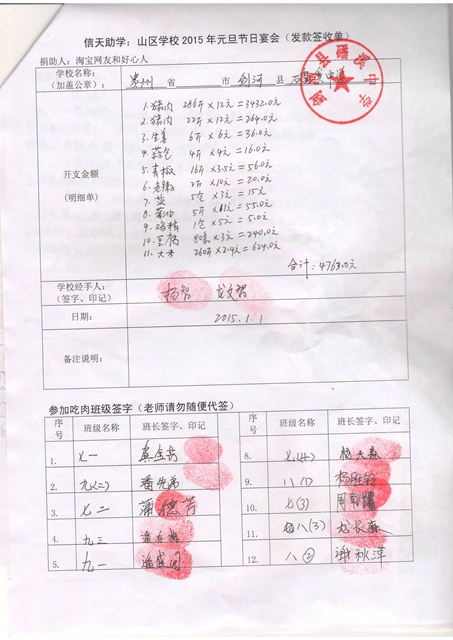 信天助学：山区学校2015年元旦节日宴会（发款签收单）
捐助人：淘宝网友和好心人
学校名称：
（加盖公章）：
贵州 省 市 剑河 县 中学
开支金额
（明细单）
1.猪肉 286斤×12元=3432.0元
2.猪肉 22斤×12元=264.0元
3.生姜 6斤×6元=36.0元
4.蒜仓 4斤×4元=16.0元
5.青椒 16斤×3.5元=56.0元
6. 2斤×10元=20.0元
7.盐 5仓×3元=15元
8.菜油 5斤×11元=55.0元
9.鸡精 1仓×5元=5.0元
10.豆腐 80块×3元=240.0元
11.大米 260斤×2.4元=624.0元
合计：4763.0元
学校经手人：
（签字、印记）
杨智 龙文智
日期：
2015.1.1
备注说明：
参加吃肉班级签字（老师请勿随便代签）
序号 班级名称 班长签字、印记
1. 七一
2. 九(二) 潘兄弟
3. 七二 蒲德芳
4. 九三
5. 九一
序号 班级名称 班长签字、印记
8. 七(4) 杨大森
9. 八(1) 杨胜铃
10. 七(3)
11. 八(3) 龙长森
12. 八② 谢秋萍